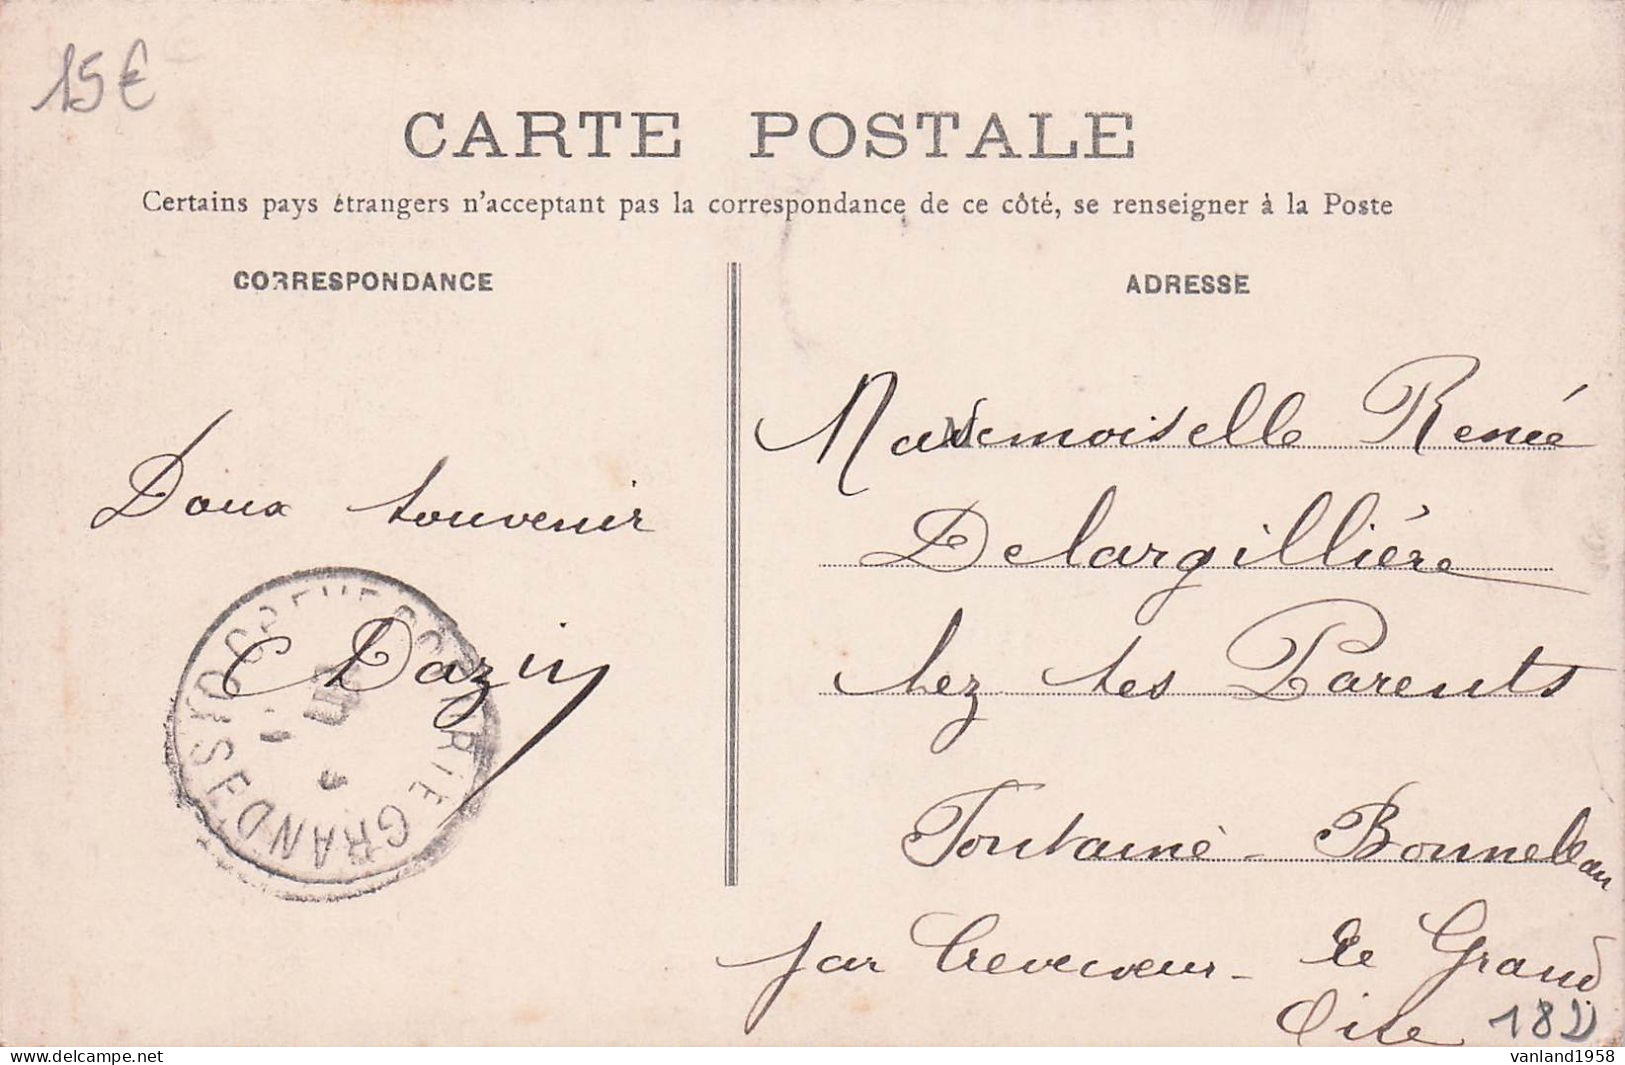 15€
CARTE POSTALE
Certains pays étrangers n'acceptant pas la correspondance de ce côté, se renseigner à la Poste
CORRESPONDANCE
ADRESSE
Doux souvenir
C Dazin
CREVECOEUR-LE-GRAND
Mademoiselle Renée
Delargillière
chez ses Parents
Fontaine - Bonneleau
par Crevecoeur - le Grand
Oise
vanland1958